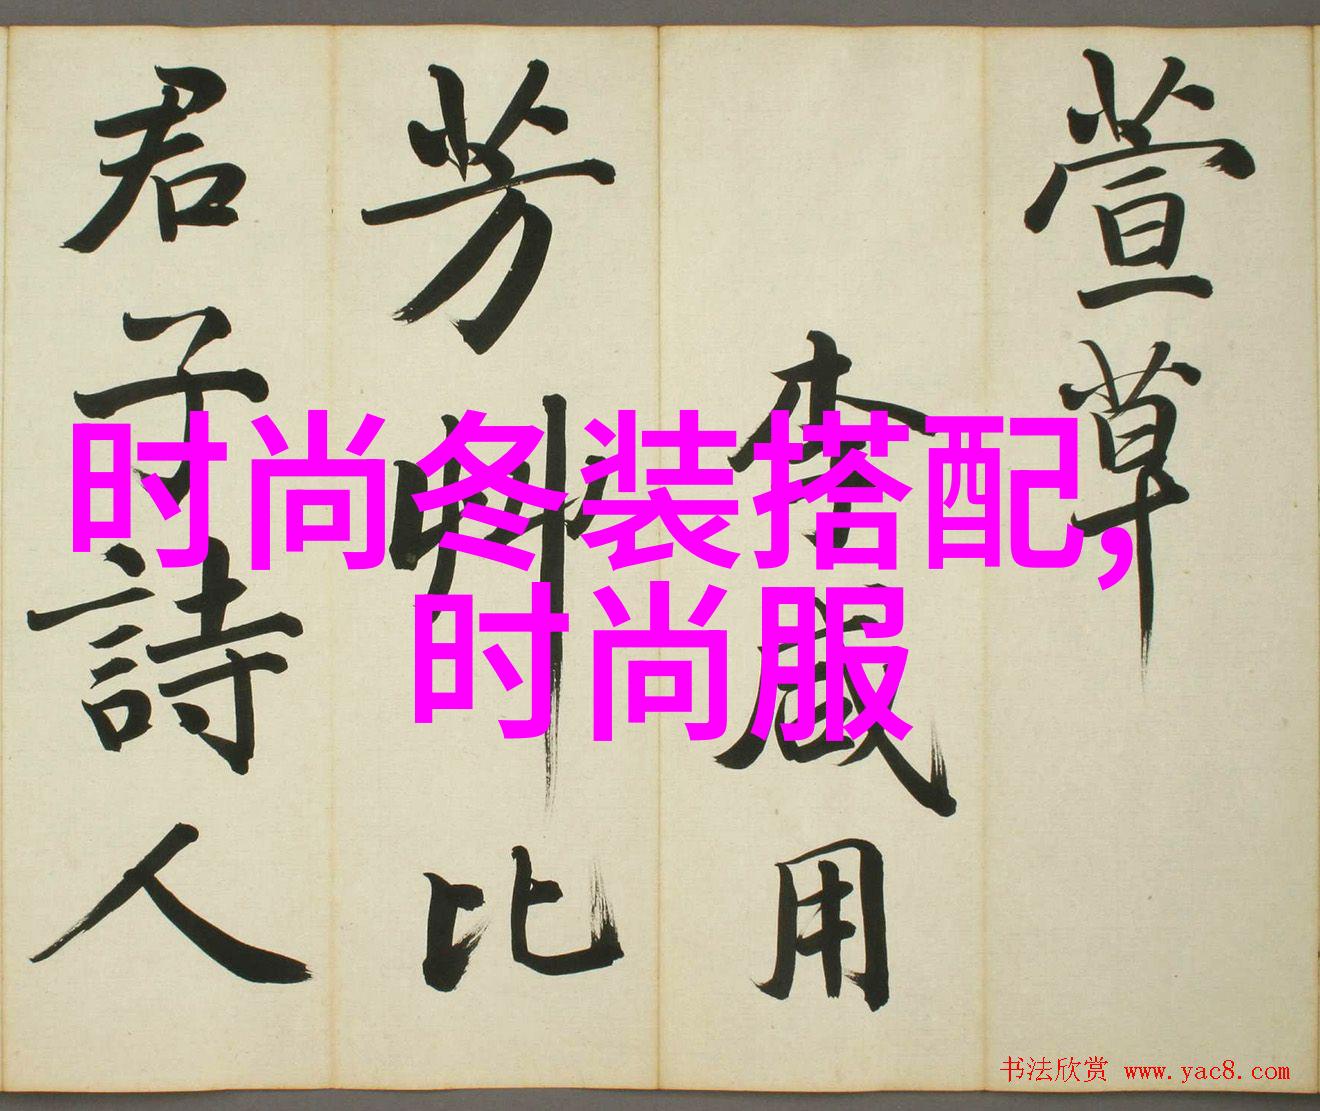 萱草
李咸用
芳艸比
君子詩人
时尚冬装搭配,
时尚服
书法欣赏 www.yac8.com